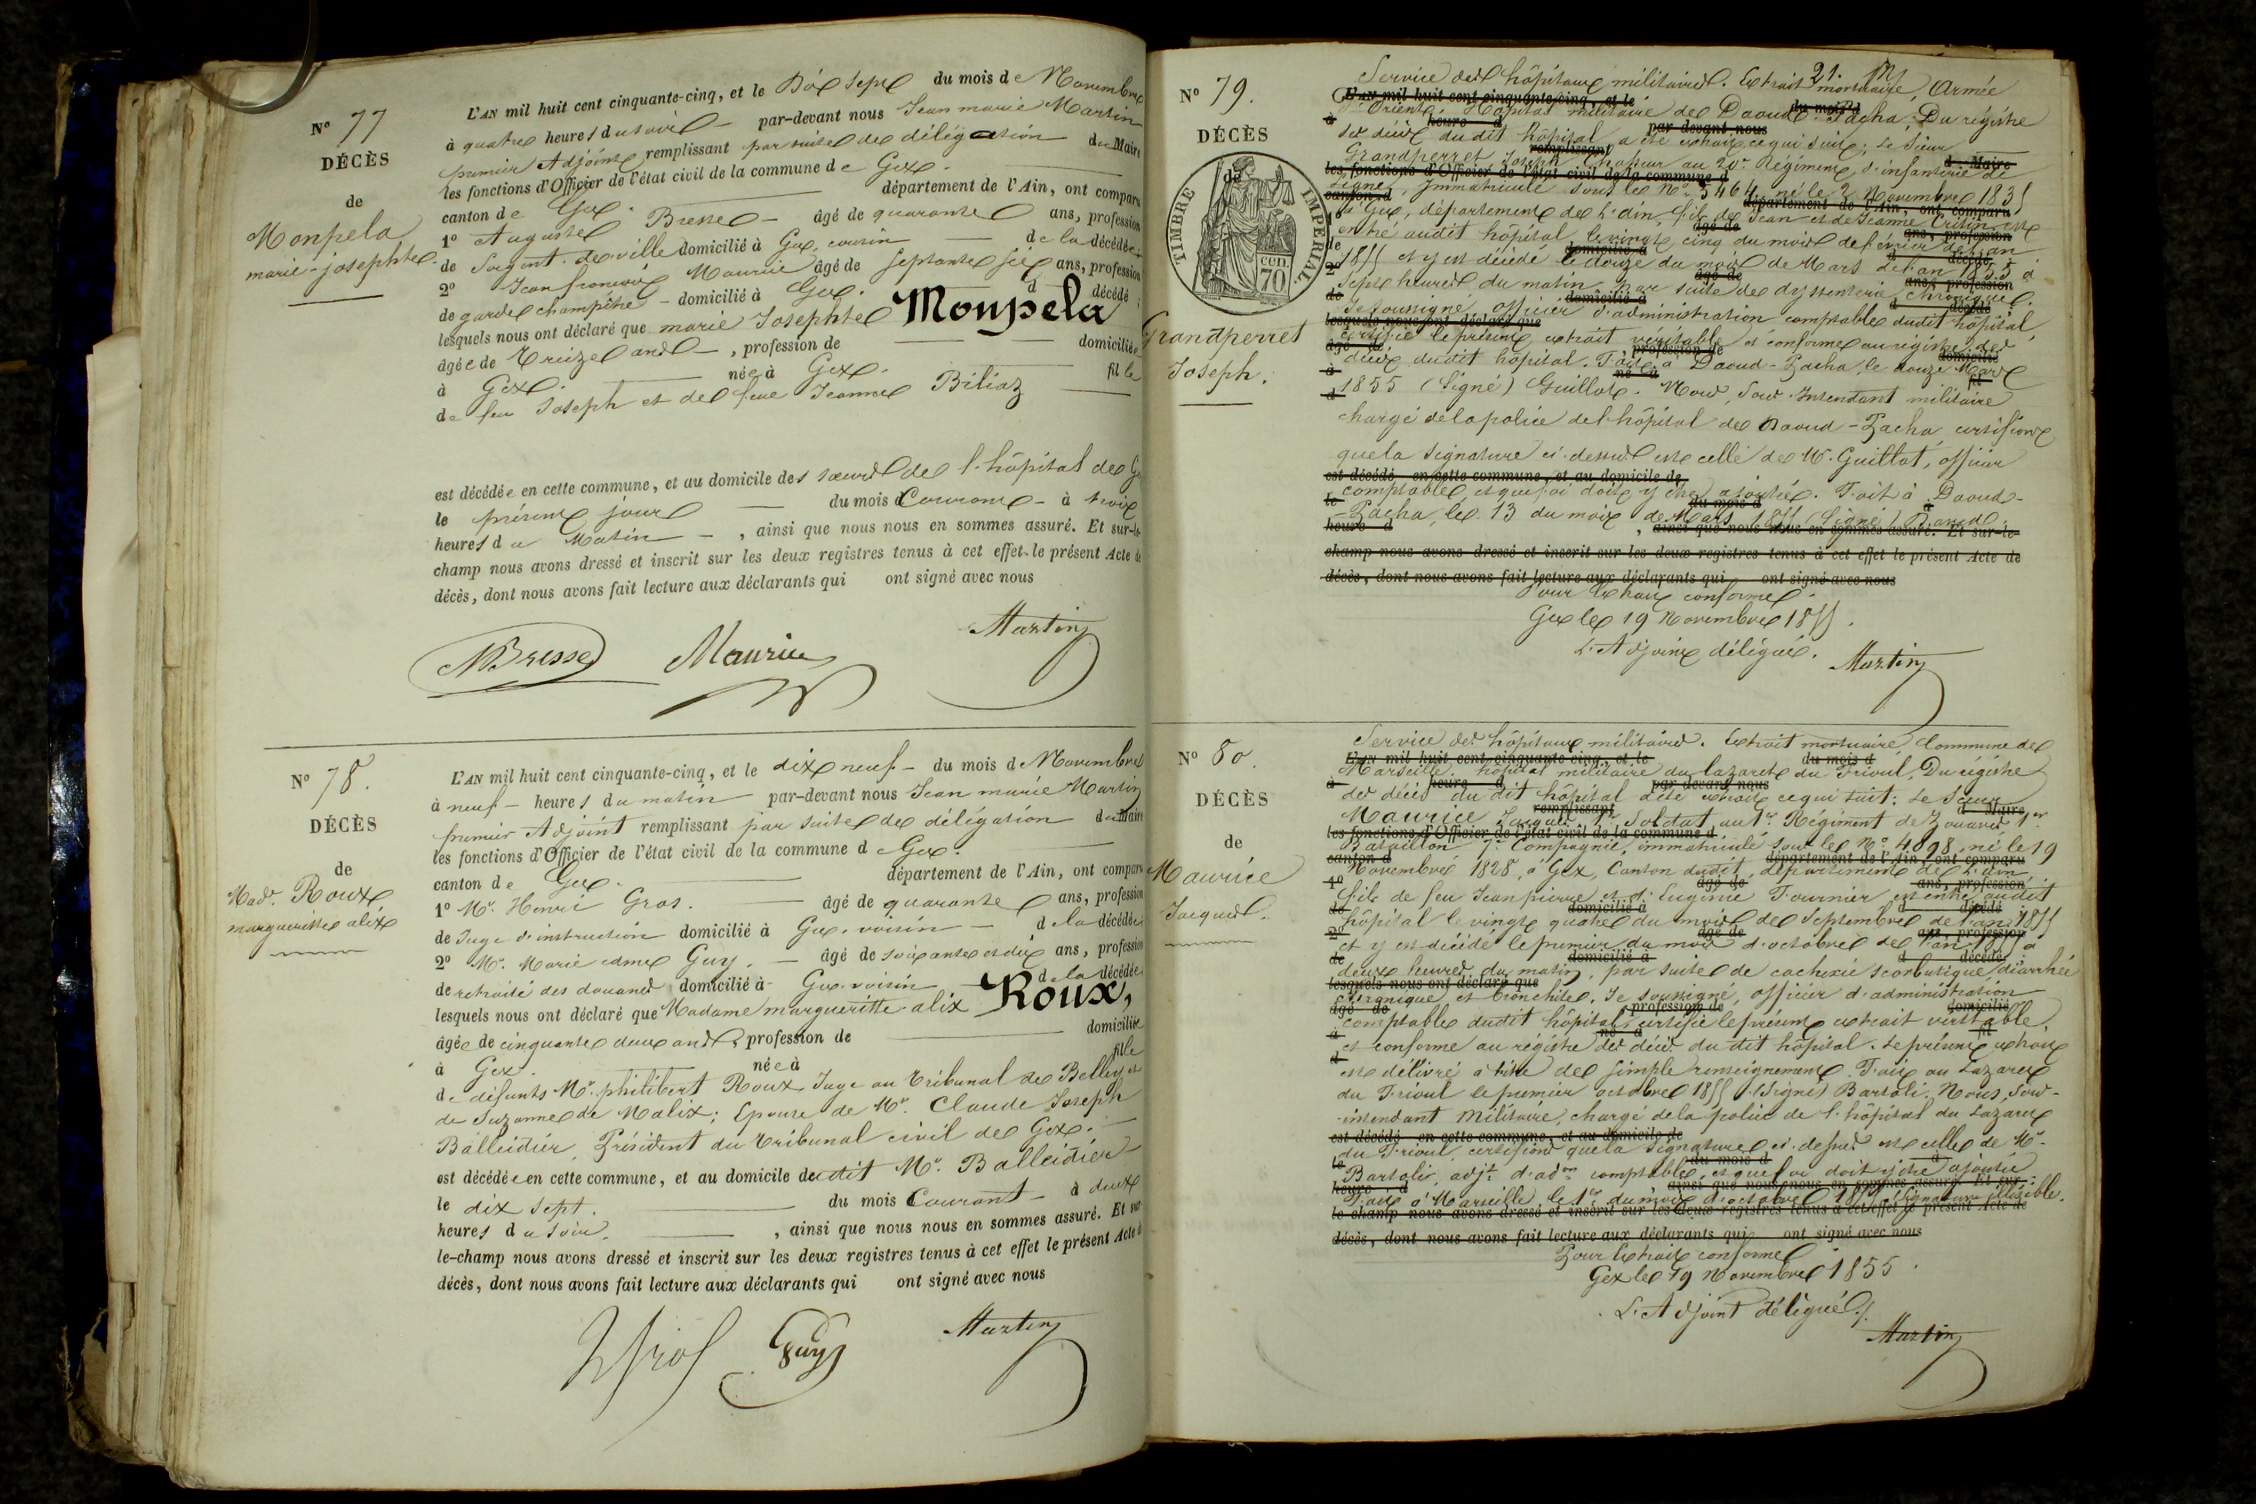 N° 77
DÉCÈS
de
Monpela
marie-josephte.
L'AN mil huit cent cinquante-cinq, et le Dix sept du mois de Novembre
à quatre heures du soir par-devant nous Jean marie Martin
premier Adjoint remplissant par suite de délégation du Maire
les fonctions d'Officier de l'état civil de la commune de Gex.
canton de Gex. département de l'Ain, ont comparu
1° Auguste Bresse âgé de quarante ans, profession
de Sergent de ville domicilié à Gex, cousin de la décédée;
2° Jean françois Maurice âgé de septante six ans, profession
de garde champêtre domicilié à Gex. d décédé;
lesquels nous ont déclaré que marie Josephte Monpela
âgée de Treize ans, profession de domiciliée
à Gex. née à Gex. fille
de feu Joseph et de feue Jeanne Biliaz
est décédée en cette commune, et au domicile des sœurs de l'hôpital de Gex
le présent jour du mois Courant à trois
heures du Matin, ainsi que nous nous en sommes assuré. Et sur-le-
champ nous avons dressé et inscrit sur les deux registres tenus à cet effet le présent Acte de
décès, dont nous avons fait lecture aux déclarants qui ont signé avec nous
ABresse Maurice Martin
N° 78.
DÉCÈS
de
Mad. Roux
margueritte alix
L'AN mil huit cent cinquante-cinq, et le dix neuf du mois de Novembre
à neuf heures du matin par-devant nous Jean marie Martin
premier Adjoint remplissant par suite de délégation du Maire
les fonctions d'Officier de l'état civil de la commune d Gex.
canton de Gex. département de l'Ain, ont comparu
1° Mr. Henri Gros. âgé de quarante ans, profession
de Juge d'instruction domicilié à Gex, voisin de la décédée
2° Mr. Marie edme Guy. âgé de soixante et dix ans, profession
de retraité des douanes domicilié à Gex, voisin de la décédée
lesquels nous ont déclaré que Madame margueritte alix Roux,
âgée de cinquante deux ans, profession de domiciliée
à Gex. née à fille
de défunts Mr. philibert Roux Juge au tribunal de Belley et
de Suzanne de Malix; Epouse de Mr. Claude Joseph
Balleidier, Président du tribunal civil de Gex.
est décédée en cette commune, et au domicile du dit Mr. Balleidier
le dix sept. du mois Courant à deux
heures du soir. , ainsi que nous nous en sommes assuré. Et sur
le-champ nous avons dressé et inscrit sur les deux registres tenus à cet effet le présent Acte de
décès, dont nous avons fait lecture aux déclarants qui ont signé avec nous
Guy Martin
21.
N° 79.
DÉCÈS
de
TIMBRE IMPERIAL
70 cen.
Grandperret
Joseph.
Service des hôpitaux militaires. Extrait mortuaire, Armée
d'Orient, Hôpital militaire de Daoud-Pacha; Du régistre
des décès du dit hôpital a été extrait ce qui suit; Le Sieur
Grandperret Joseph Chasseur au 20e. Régiment d'infanterie de
Ligne, immatriculé sous le No. 5464, né le 2 Novembre 1831
à Gex, département de l'Ain, fils de Jean et de Jeanne est
entré audit hôpital le vingt cinq du mois de février de l'an
1855 et y est décédé le douze du mois de Mars de l'an 1855 à
Sept heures du matin par suite de dyssenterie chronique.
Je soussigné, officier d'administration comptable dudit hôpital,
certifie le présent extrait véritable et conforme au régistre des
décès dudit hôpital. Fait à Daoud-Pacha, le douze Mars
1855 (Signé) Guillot. Nous, Sous Intendant militaire
chargé de la police de l'hôpital de Daoud-Pacha certifions
que la signature ci-dessus est celle de Mr. Guillot, officier
comptable, et que foi doit y être ajoutée. Fait à Daoud-
-Pacha, le 13 du mois de Mars 1855 (Signé)
Pour Extrait conforme.
Gex le 19 Novembre 1855.
L'Adjoint délégué.
Martin
N° 80.
DÉCÈS
de
Maurice
Jacques.
Service des hôpitaux militaires. Extrait mortuaire, Commune de
Marseille. hôpital militaire du lazaret du Frioul. Du régistre
des décès du dit hôpital a été extrait ce qui suit: Le Sieur
Maurice Jacques, Soldat au 1er. Régiment de Zouaves 1er.
Bataillon 7e Compagnie, immatriculé sous le No. 4098, né le 19
Novembre 1828, à Gex, Canton dudit, département de l'Ain,
fils de feu Jean pierre et d'Eugénie Fournier est entré audit
hôpital le vingt quatre du mois de Septembre de l'an 1855
et y est décédé le premier du mois d'octobre de l'an 1855 à
deux heures du matin, par suite de cachexie scorbutique, diarrhée
chronique et bronchite. Je soussigné, officier d'administration
comptable dudit hôpital certifie le présent extrait véritable,
et conforme au régistre des décès du dit hôpital. Le présent extrait
est délivré à titre de simple renseignement. Fait au Lazaret
du Frioul le premier octobre 1855 (Signé) Bartoli. Nous, Sous-
-intendant Militaire, chargé de la police de l'hôpital du Lazaret
du Frioul certifions que la signature ci-dessus est celle de Mr.
Bartoli, adjt. d'adon. comptable, et que foi doit y être ajoutée
Fait à Marseille, le 1er du mois d'octobre 1855. Signature illisible.
Pour Extrait conforme
Gex le 19 Novembre 1855.
L'Adjoint délégué.
Martin